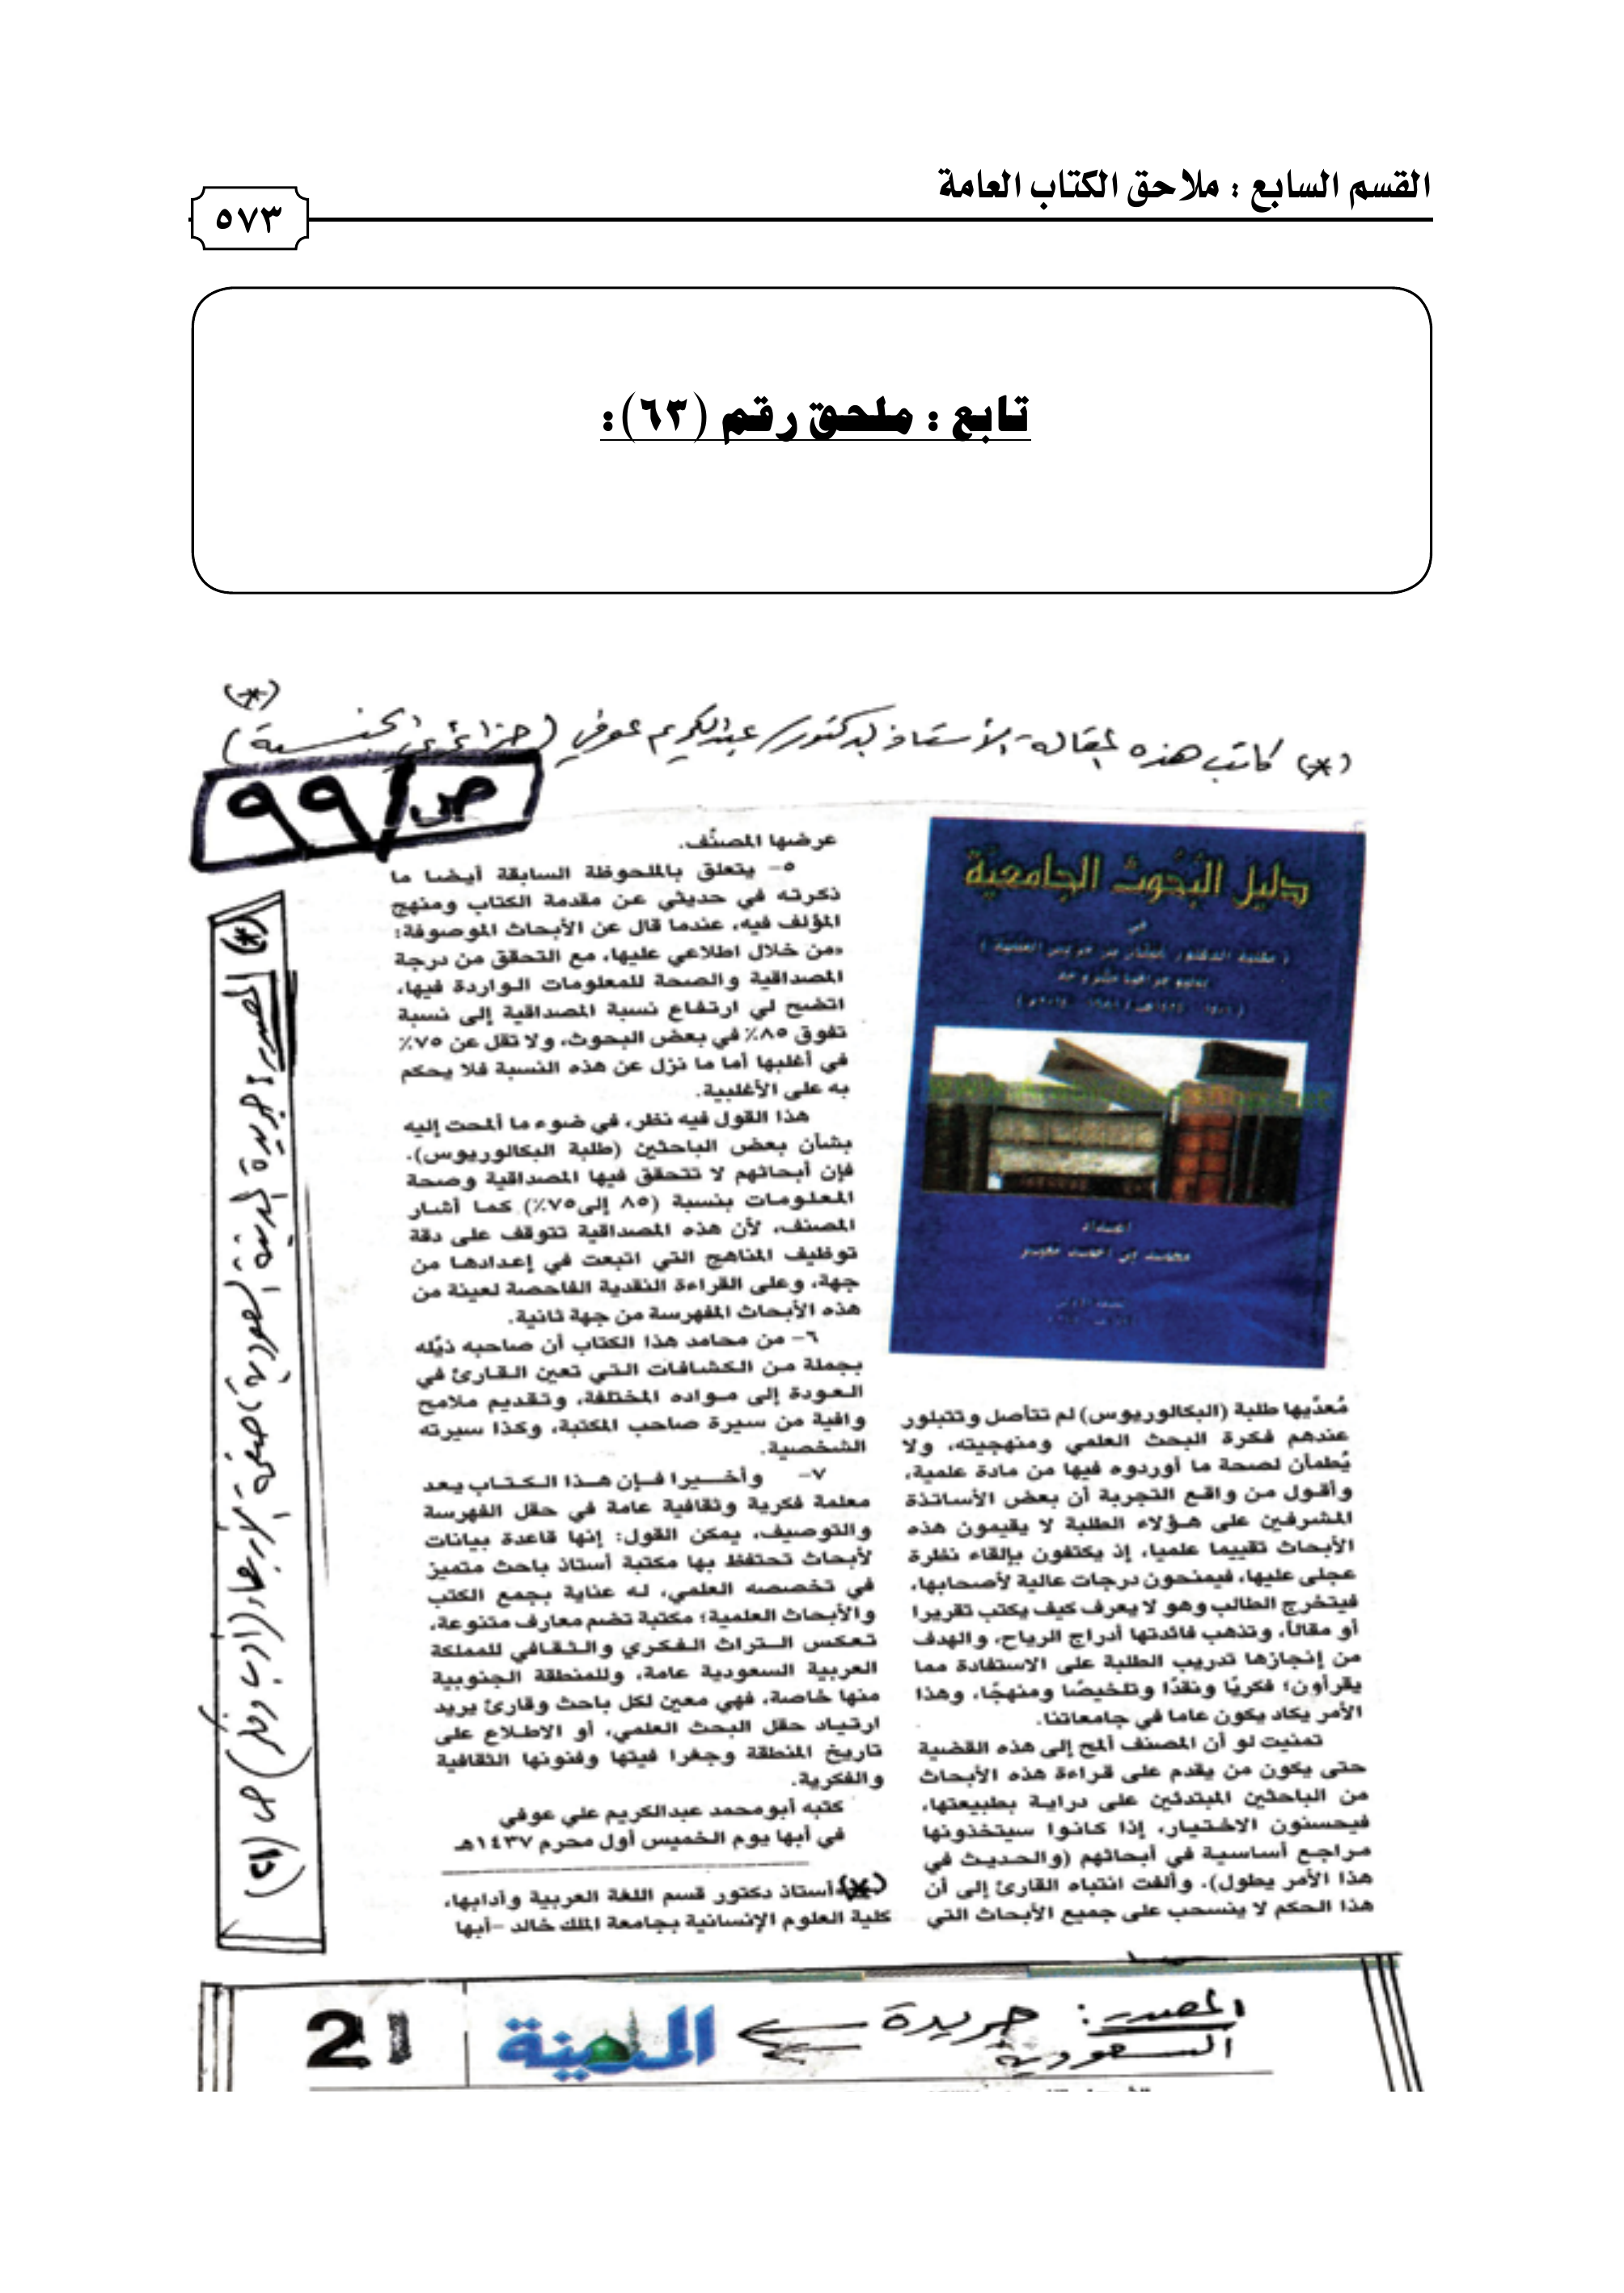 القسم السابع : ملاحق الكتاب العامة
٥٧٣
تابع : ملحق رقم (٦٣):
(*)
(*) كاتب هذه المقالة الأستاذ الدكتور/ عبدالكريم عوفي (جزائري الجنسية)
ص/ ٩٩
دليل البُحوث الجامعيّة
في
إعداد
محمد بن أحمد معبر
مُعدّيها طلبة (البكالوريوس) لم تتأصل وتتبلور
عندهم فكرة البحث العلمي ومنهجيته، ولا
يُطمأن لصحة ما أوردوه فيها من مادة علمية،
وأقول من واقع التجربة أن بعض الأساتذة
المشرفين على هؤلاء الطلبة لا يقيمون هذه
الأبحاث تقييما علميا، إذ يكتفون بإلقاء نظرة
عجلى عليها، فيمنحون درجات عالية لأصحابها،
فيتخرج الطالب وهو لا يعرف كيف يكتب تقريرا
أو مقالاً، وتذهب فائدتها أدراج الرياح، والهدف
من إنجازها تدريب الطلبة على الاستفادة مما
يقرأون؛ فكريًا ونقدًا وتلخيصًا ومنهجًا، وهذا
الأمر يكاد يكون عاما في جامعاتنا.
تمنيت لو أن المصنف ألمح إلى هذه القضية
حتى يكون من يقدم على قراءة هذه الأبحاث
من الباحثين المبتدئين على دراية بطبيعتها،
فيحسنون الاختيار، إذا كانوا سيتخذونها
مراجع أساسية في أبحاثهم (والحديث في
هذا الأمر يطول). وألفت انتباه القارئ إلى أن
هذا الحكم لا ينسحب على جميع الأبحاث التي
عرضها المصنّف.
٥- يتعلق بالملحوظة السابقة أيضا ما
ذكرته في حديثي عن مقدمة الكتاب ومنهج
المؤلف فيه، عندما قال عن الأبحاث الموصوفة:
«من خلال اطلاعي عليها، مع التحقق من درجة
المصداقية والصحة للمعلومات الواردة فيها،
اتضح لي ارتفاع نسبة المصداقية إلى نسبة
تفوق ٨٥٪ في بعض البحوث، ولا تقل عن ٧٥٪
في أغلبها أما ما نزل عن هذه النسبة فلا يحكم
به على الأغلبية.
هذا القول فيه نظر، في ضوء ما ألمحت إليه
بشأن بعض الباحثين (طلبة البكالوريوس)،
فإن أبحاثهم لا تتحقق فيها المصداقية وصحة
المعلومات بنسبة (٨٥ إلى٧٥٪) كما أشار
المصنف، لأن هذه المصداقية تتوقف على دقة
توظيف المناهج التي اتبعت في إعدادها من
جهة، وعلى القراءة النقدية الفاحصة لعينة من
هذه الأبحاث المفهرسة من جهة ثانية.
٦- من محامد هذا الكتاب أن صاحبه ذيّله
بجملة من الكشافات التي تعين القارئ في
العودة إلى مواده المختلفة، وتقديم ملامح
وافية من سيرة صاحب المكتبة، وكذا سيرته
الشخصية.
٧- وأخيرا فإن هذا الكتاب يعد
معلمة فكرية وثقافية عامة في حقل الفهرسة
والتوصيف، يمكن القول: إنها قاعدة بيانات
لأبحاث تحتفظ بها مكتبة أستاذ باحث متميز
في تخصصه العلمي، له عناية بجمع الكتب
والأبحاث العلمية؛ مكتبة تضم معارف متنوعة،
تعكس التراث الفكري والثقافي للمملكة
العربية السعودية عامة، وللمنطقة الجنوبية
منها خاصة، فهي معين لكل باحث وقارئ يريد
ارتياد حقل البحث العلمي، أو الاطلاع على
تاريخ المنطقة وجغرا فيتها وفنونها الثقافية
والفكرية.
كتبه أبومحمد عبدالكريم علي عوفي
في أبها يوم الخميس أول محرم ١٤٣٧هـ
(*) أستاذ دكتور قسم اللغة العربية وآدابها،
كلية العلوم الإنسانية بجامعة الملك خالد -أبها
(*) المصدر: جريدة المدينة السعودية، صفحة الأربعاء، (أدب وفكر) ص (٢١)
المصدر: جريدة
السعودية
المدينة
21